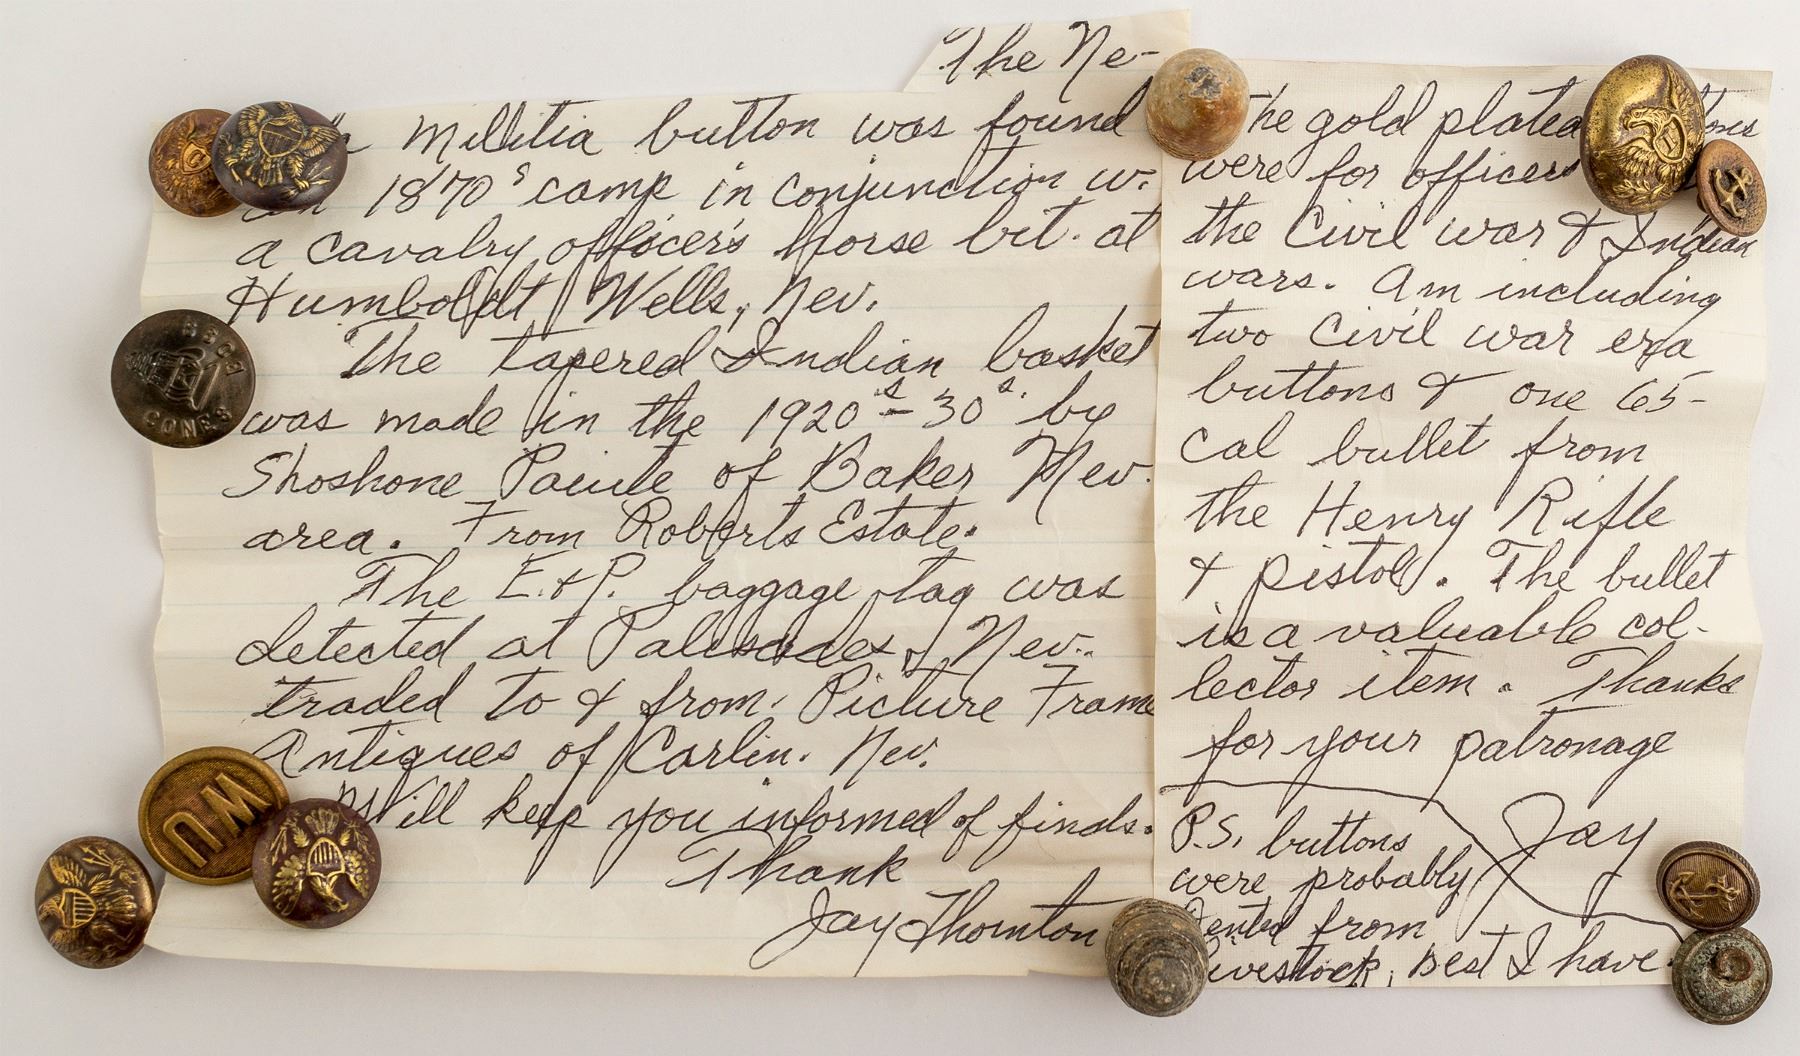 The Ne-
Militia button was found
an 1870s camp in conjunction w.
a cavalry officer's horse bit. at
Humboldt Wells, Nev.
The tapered Indian basket
was made in the 1920s-30s. by
Shoshone Paiute of Baker Nev.
area. From Roberts Estate.
The E.&P. baggage tag was
detected at Palisades, Nev.
traded to & from. Picture Frame
Antiques of Carlin. Nev.
Will keep you informed of finds.
Thank
Jay Thornton
The gold plated
were for officers
the Civil war & Indian
wars. Am including
two Civil war era
buttons & one 65-
cal bullet from
the Henry Rifle
& pistol. The bullet
is a valuable col-
lector item. Thanks
for your patronage
Jay
P.S. buttons
were probably
dented from
livestock, best I have.
CONES
WU